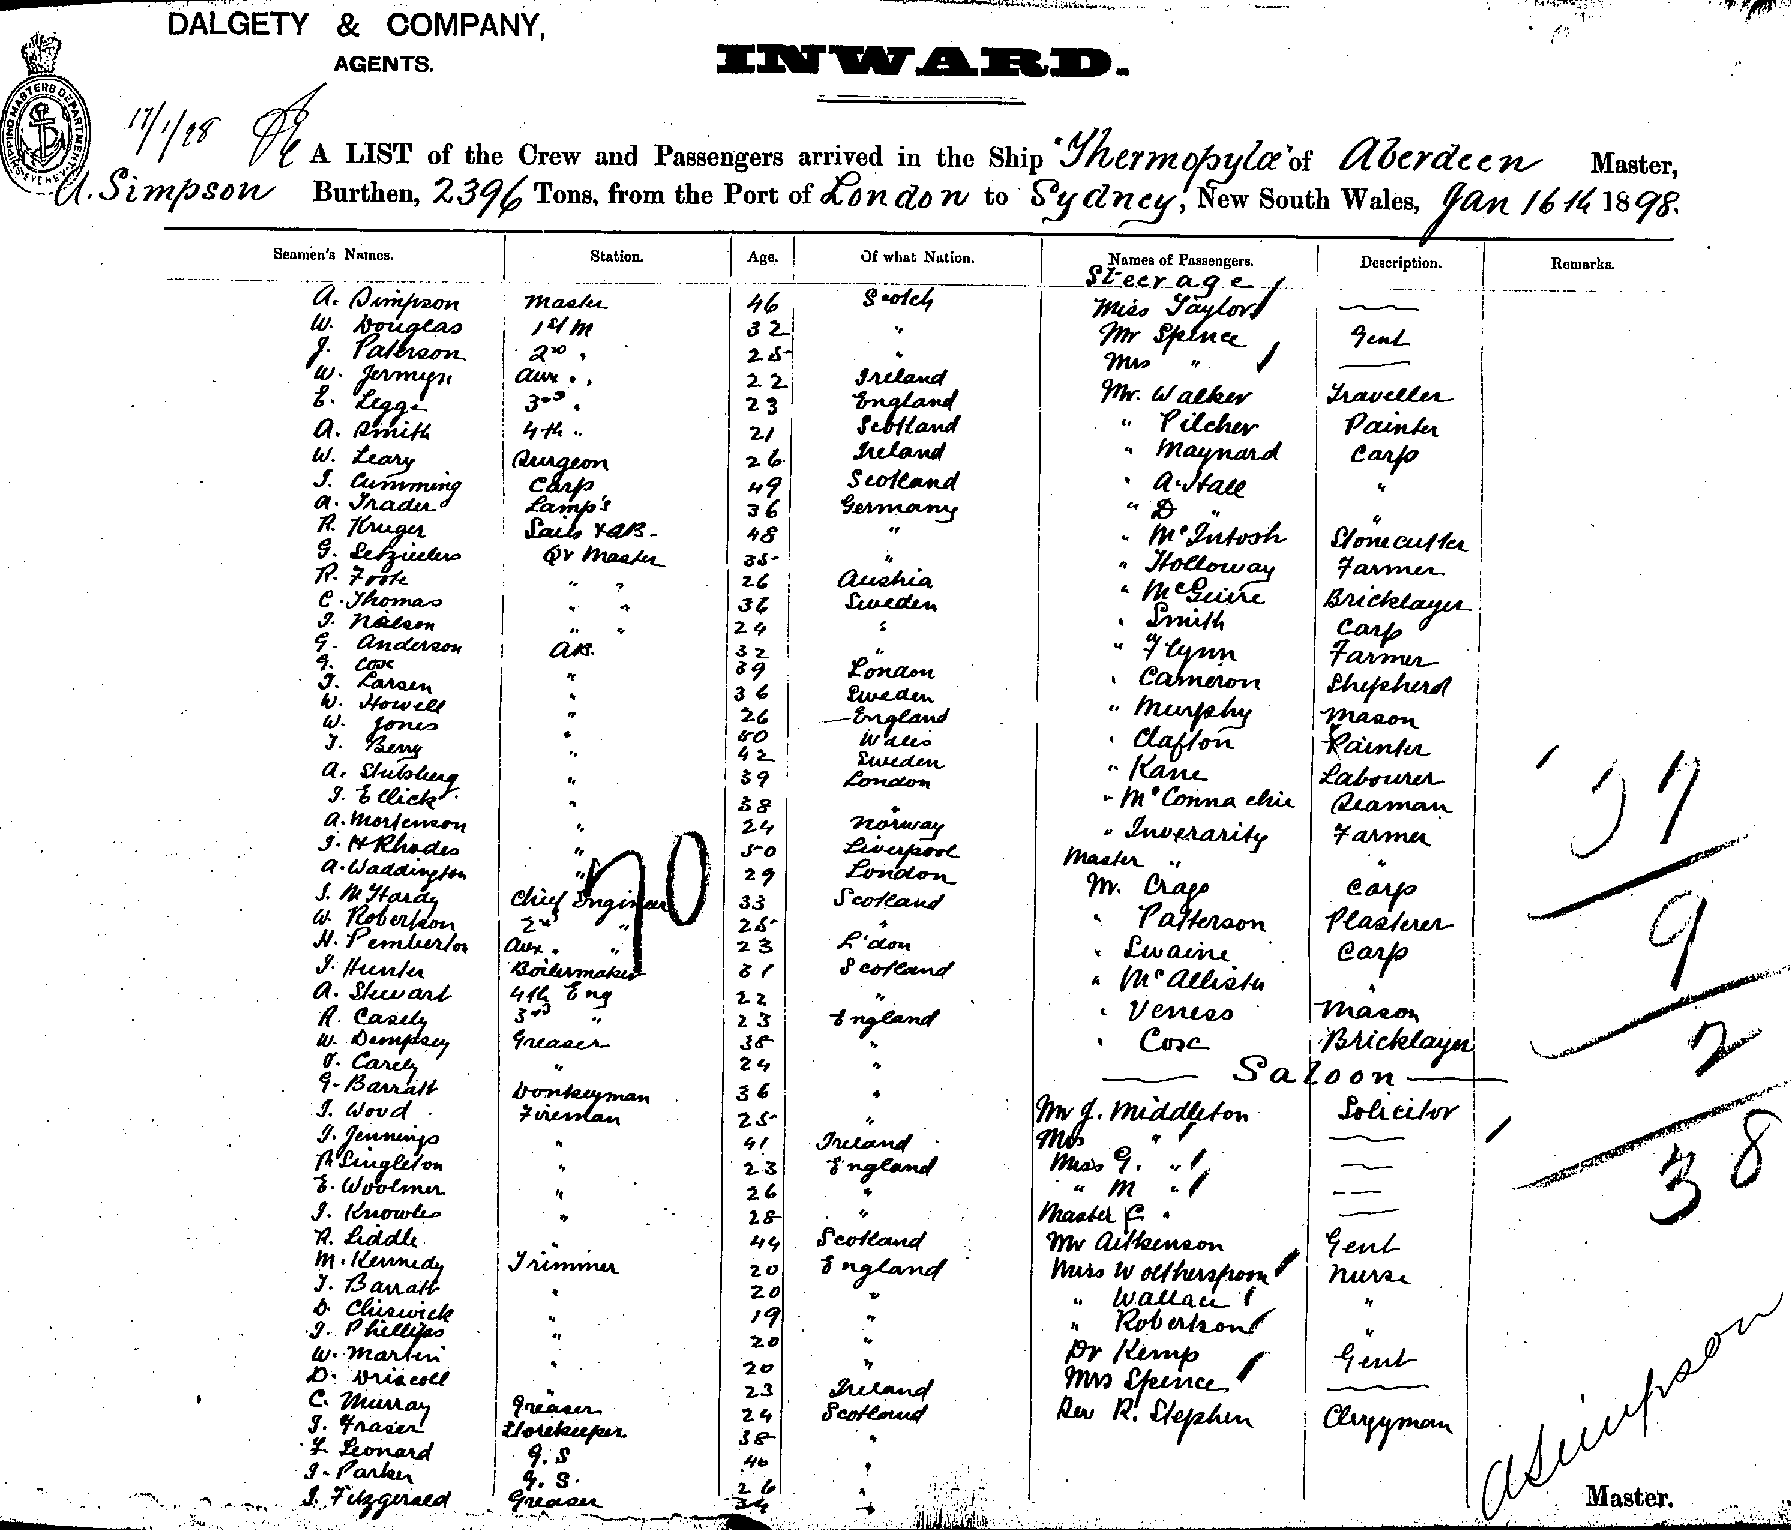 DALGETY & COMPANY,
AGENTS.
INWARD.
SHIPPING MASTERS DEPARTMENT
17/1/98
A LIST of the Crew and Passengers arrived in the Ship "Thermopylæ" of Aberdeen Master,
A. Simpson Burthen, 2396 Tons, from the Port of London to Sydney, New South Wales, Jan 16th 1898.
Seamen's Names. Station. Age. Of what Nation. Names of Passengers. Description. Remarks.
Steerage
A. Simpson Master 46 Scotch Miss Taylor —
W. Douglas 1st M 32 " Mr Spence Gent
J. Paterson 2nd " 25 " Mrs " —
W. Jermyn Aux " " 22 Ireland Mr. Walker Traveller
E. Legge 3rd " 23 England " Pilcher Painter
A. Smith 4th " 21 Scotland " Maynard Carp
W. Leary Surgeon 26 Ireland " A. Hall "
J. Cumming Carp 49 Scotland " D " "
A. Trader Lamp's 36 Germany " McIntosh Stonecutter
R. Kruger Sails & AB. 48 " " Holloway Farmer
G. Qr Master 35 " " McGuire Bricklayer
R. Foote " " 26 Austria " Smith Carp
C. Thomas " " 36 Sweden " Flynn Farmer
J. Nelson " " 24 " " Cameron Shepherd
G. Anderson AB. 32 " " Murphy Mason
G. Cox " 39 London " Clafton Painter
J. Larsen " 36 Sweden " Kane Labourer
W. Howell " 26 England " McConnachie Seaman
W. Jones " 50 Wales " Inverarity Farmer
J. Berry " 42 Sweden Master " "
A. Stutsberg " 39 London Mr. Crago Carp
J. Ellick " 38 " " Patterson Plasterer
A. Mortenson " 24 Norway " Swaine Carp
J. H Rhodes " 50 Liverpool " McAllister "
A. Waddington " 29 London " Veness Mason
J. McHardy Chief Engineer 33 Scotland " Cox Bricklayer
W. Robertson 2nd " 25 " Saloon
H. Pemberton Aux. " 23 L'don Mr J. Middleton Solicitor
J. Hunter Boilermaker 31 Scotland Mrs " —
A. Stewart 4th Eng 22 " Miss G. " —
R. Casely 3rd " 23 England " M " —
W. Dempsey Greaser 38 " Master C. " —
J. Carely " 24 " Mr Aitkenson Gent
G. Barratt Donkeyman 36 " Miss Woltherspoon Nurse
J. Wood Fireman 25 " " Wallace "
J. Jennings " 41 Ireland " Robertson "
R Singleton " 23 England Dr Kemp Gent
E. Woolmer " 26 " Mrs Spence —
J. Knowles " 28 " Rev R. Stephen Clergyman
R. Liddle " 44 Scotland
M. Kennedy Trimmer 20 England
J. Barratt " 20 "
D. Chiswick " 19 "
J. Phillips " 20 "
W. Martin " 20 "
D. Driscoll " 23 Ireland
C. Murray Greaser 24 Scotland
J. Fraser Storekeeper 38 "
F. Leonard G. S 40 "
J. Parker G. S. 26 "
J. Fitzgerald Greaser 34 "
70
37
9
2
38
A Simpson
Master.